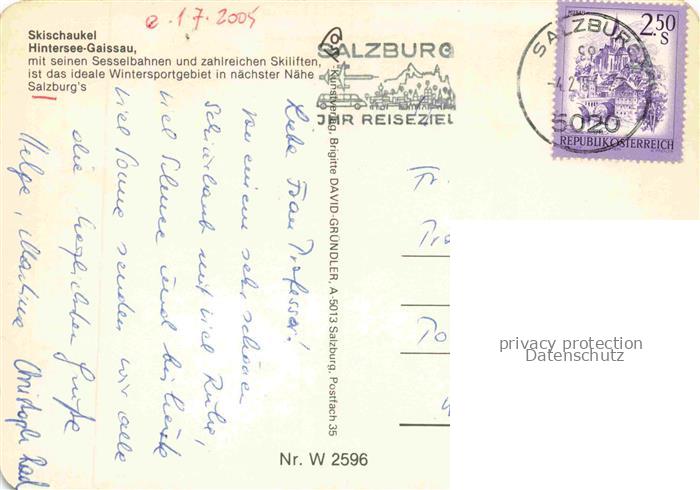 e. 1 7. 2005
Skischaukel
Hintersee-Gaissau,
mit seinen Sesselbahnen und zahlreichen Skiliften,
ist das ideale Wintersportgebiet in nächster Nähe
Salzburg's
SALZBURG
IHR REISEZIEL
SALZBURG
5020
2.50
S
REPUBLIK ÖSTERREICH
Liebe Frau Professor!
Von einem sehr schönen
Schiurlaub mit viel Ruhe,
viel Schnee und
viel Sonne senden wir alle
die herzlichsten Grüße
Helga, Martina Christoph
Kunstverlag, Brigitte DAVID-GRÜNDLER, A-5013 Salzburg, Postfach 35
Fr.
Nr. W 2596
privacy protection
Datenschutz